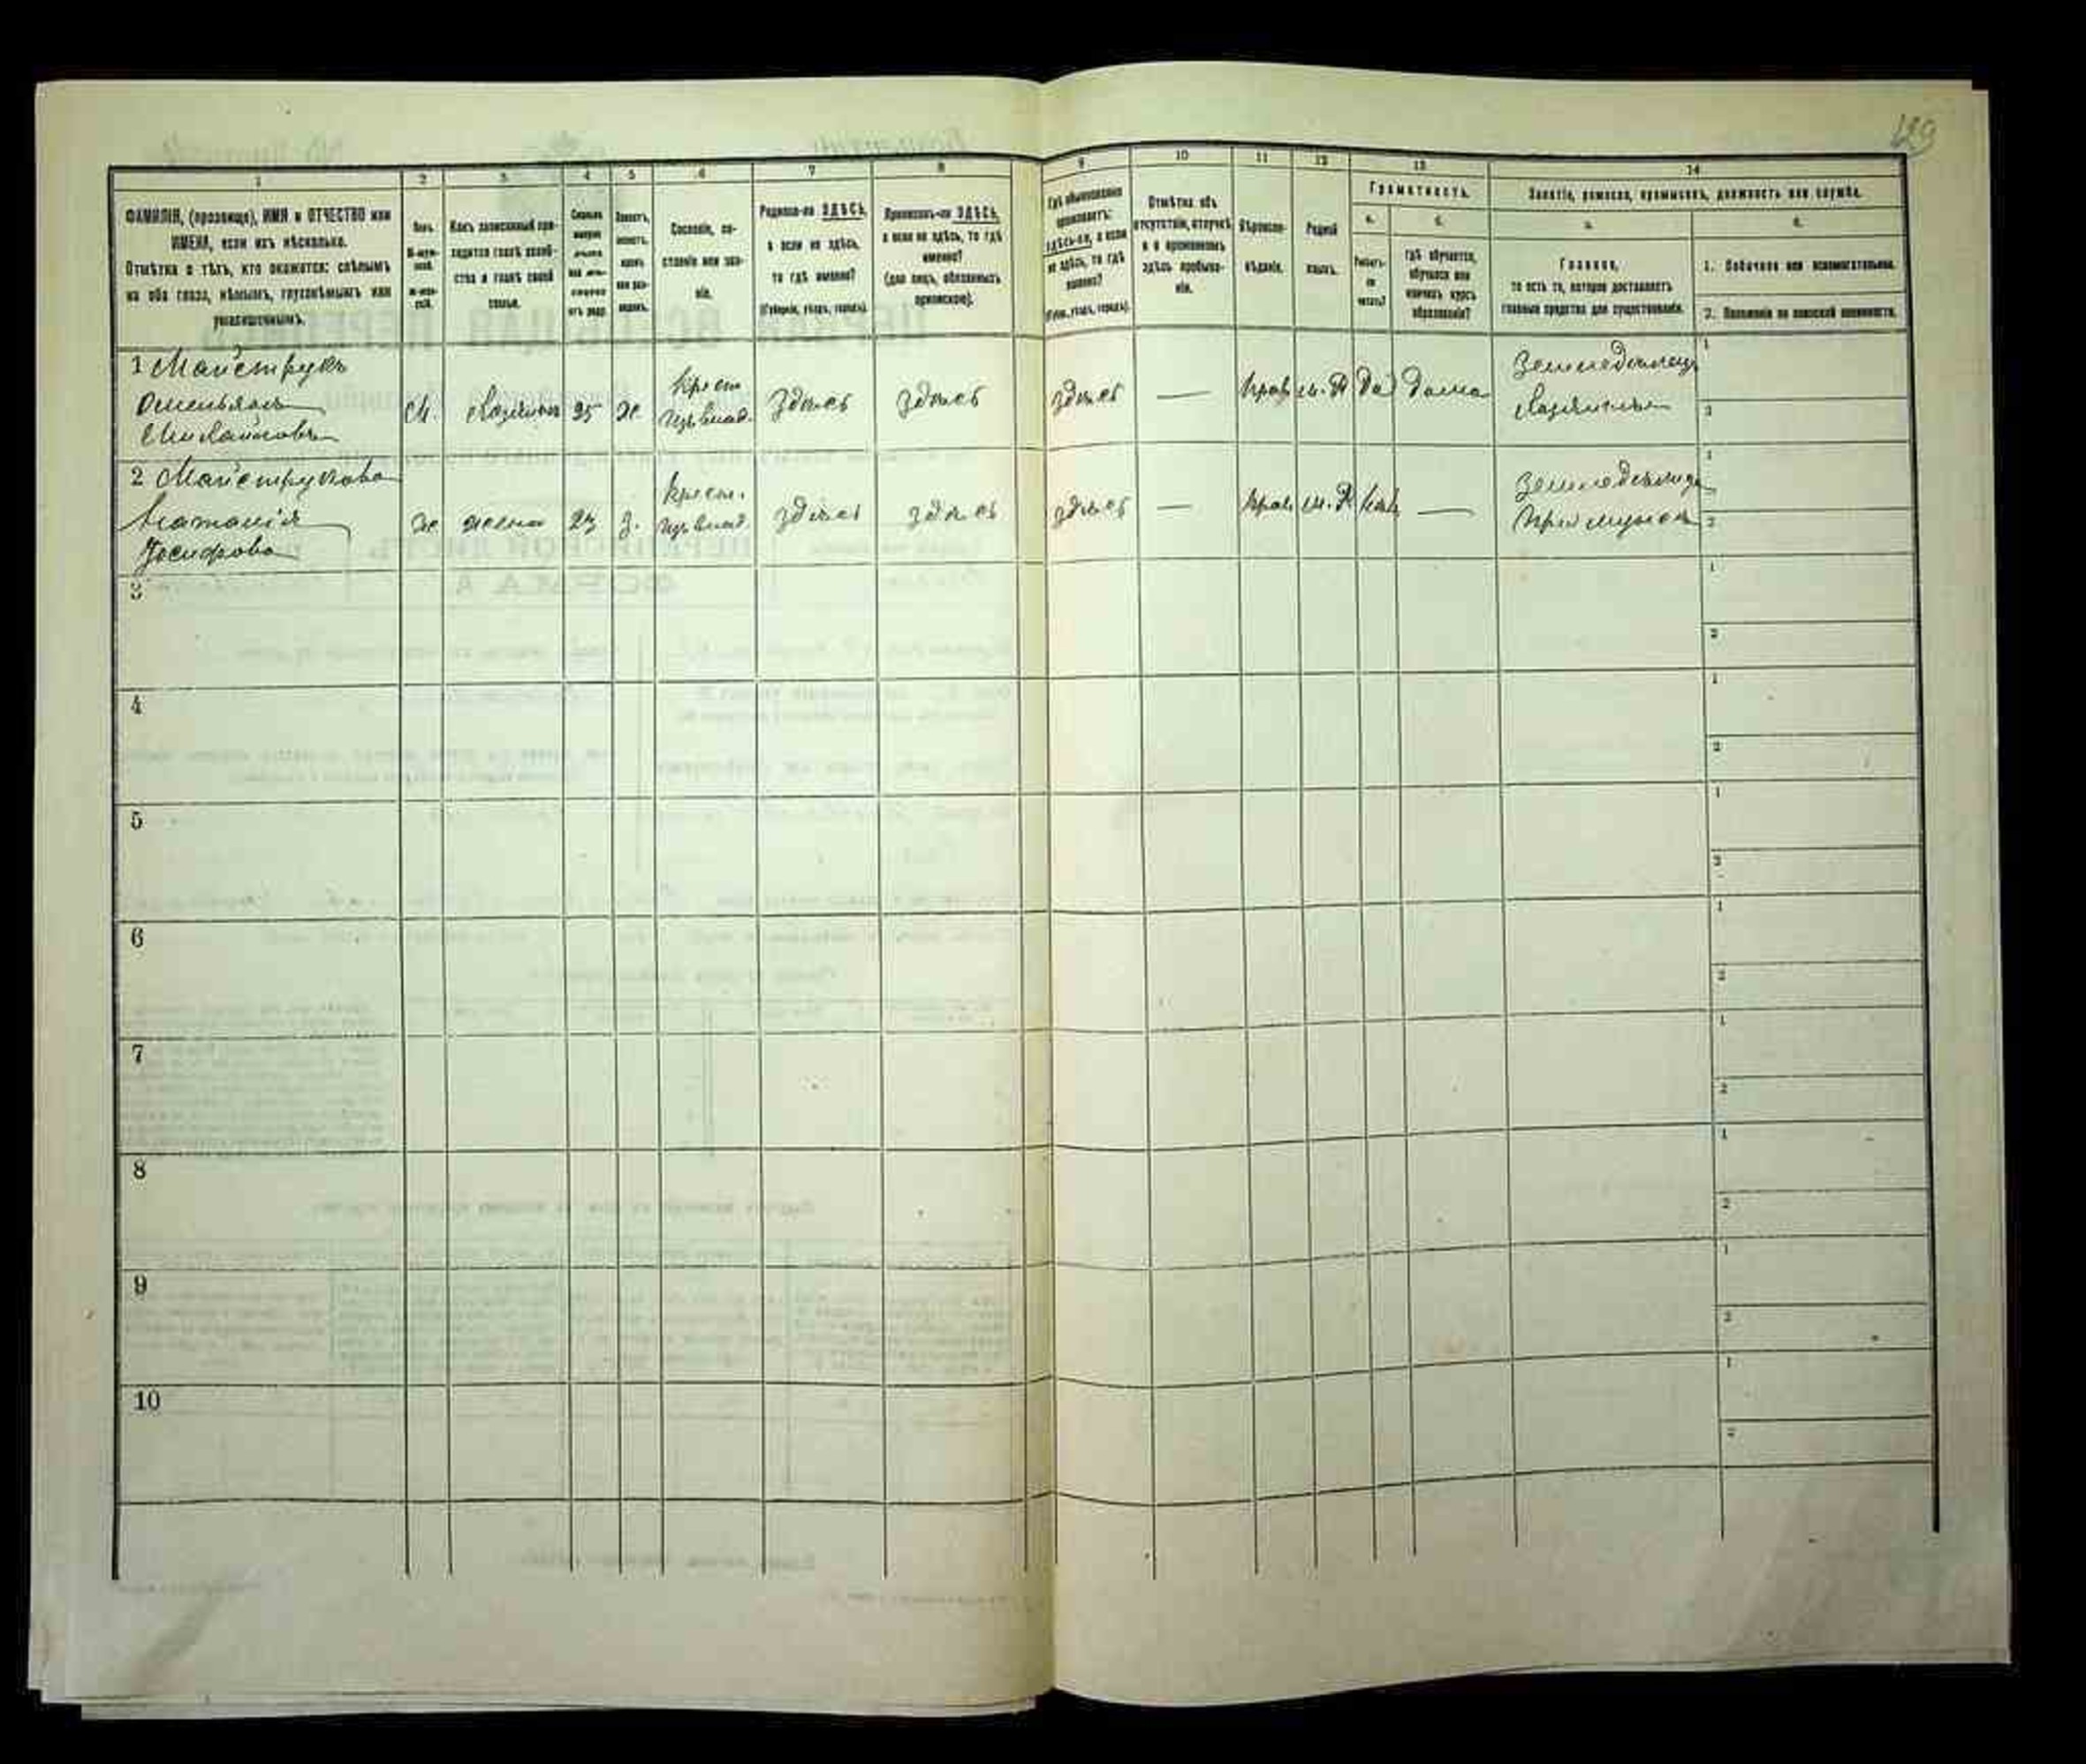 129
1 2 3 4 5 6 7 8 9 10 11 12 13 14
ФАМИЛІЯ, (прозвище), ИМЯ и ОТЧЕСТВО или
ИМЕНА, если ихъ нѣсколько.
Отмѣтка о тѣхъ, кто окажется: слѣпымъ
на оба глаза, нѣмымъ, глухонѣмымъ или
умалишеннымъ.
Полъ.
М-муж-
ской.
Ж-жен-
скій.
Какъ записанный при-
ходится главѣ хозяй-
ства и главѣ своей
семьи.
Сколько
минуло
лѣтъ
или мѣ-
сяцевъ
отъ роду.
Холостъ,
женатъ,
вдовъ
или раз-
веденъ.
Сословіе, со-
стояніе или зва-
ніе.
Родился-ли ЗДѢСЬ,
а если не здѣсь,
то гдѣ именно?
(Губернія, уѣздъ, городъ).
Приписанъ-ли ЗДѢСЬ,
а если не здѣсь, то гдѣ
именно?
(для лицъ, обязанныхъ
припискою).
Гдѣ обыкновенно
проживаетъ:
здѣсь-ли, а если
не здѣсь, то гдѣ
именно?
(Губ., уѣздъ, городъ).
Отмѣтка объ
отсутствіи, отлучкѣ
и о временномъ
здѣсь пребыва-
ніи.
Вѣроиспо-
вѣданіе.
Родной
языкъ.
Грамотность.
а. б.
Умѣетъ-
ли
читать?
Гдѣ обучается,
обучался или
кончилъ курсъ
образованія?
Занятіе, ремесло, промыселъ, должность или служба.
а. б.
Главное,
то есть то, которое доставляетъ
главныя средства для существованія.
1. Побочное или вспомогательное.
2. Положеніе по воинской повинности.
1 Майструкъ
Омельянъ
Михайловъ
М. хозяинъ 25 ж. крест. изъ влад. здѣсь здѣсь здѣсь — прав. м. Р да дома
Земледѣлецъ
хозяинъ
1
2
2 Майструкова
Наталія
Іосифова
ж жена 23 з. крест. изъ влад. здѣсь здѣсь здѣсь — прав. м. Р нѣтъ —
Земледѣлица
при мужѣ
1
2
3
1
2
4
1
2
5
1
2
6
1
2
7
1
2
8
1
2
9
1
2
10
1
2